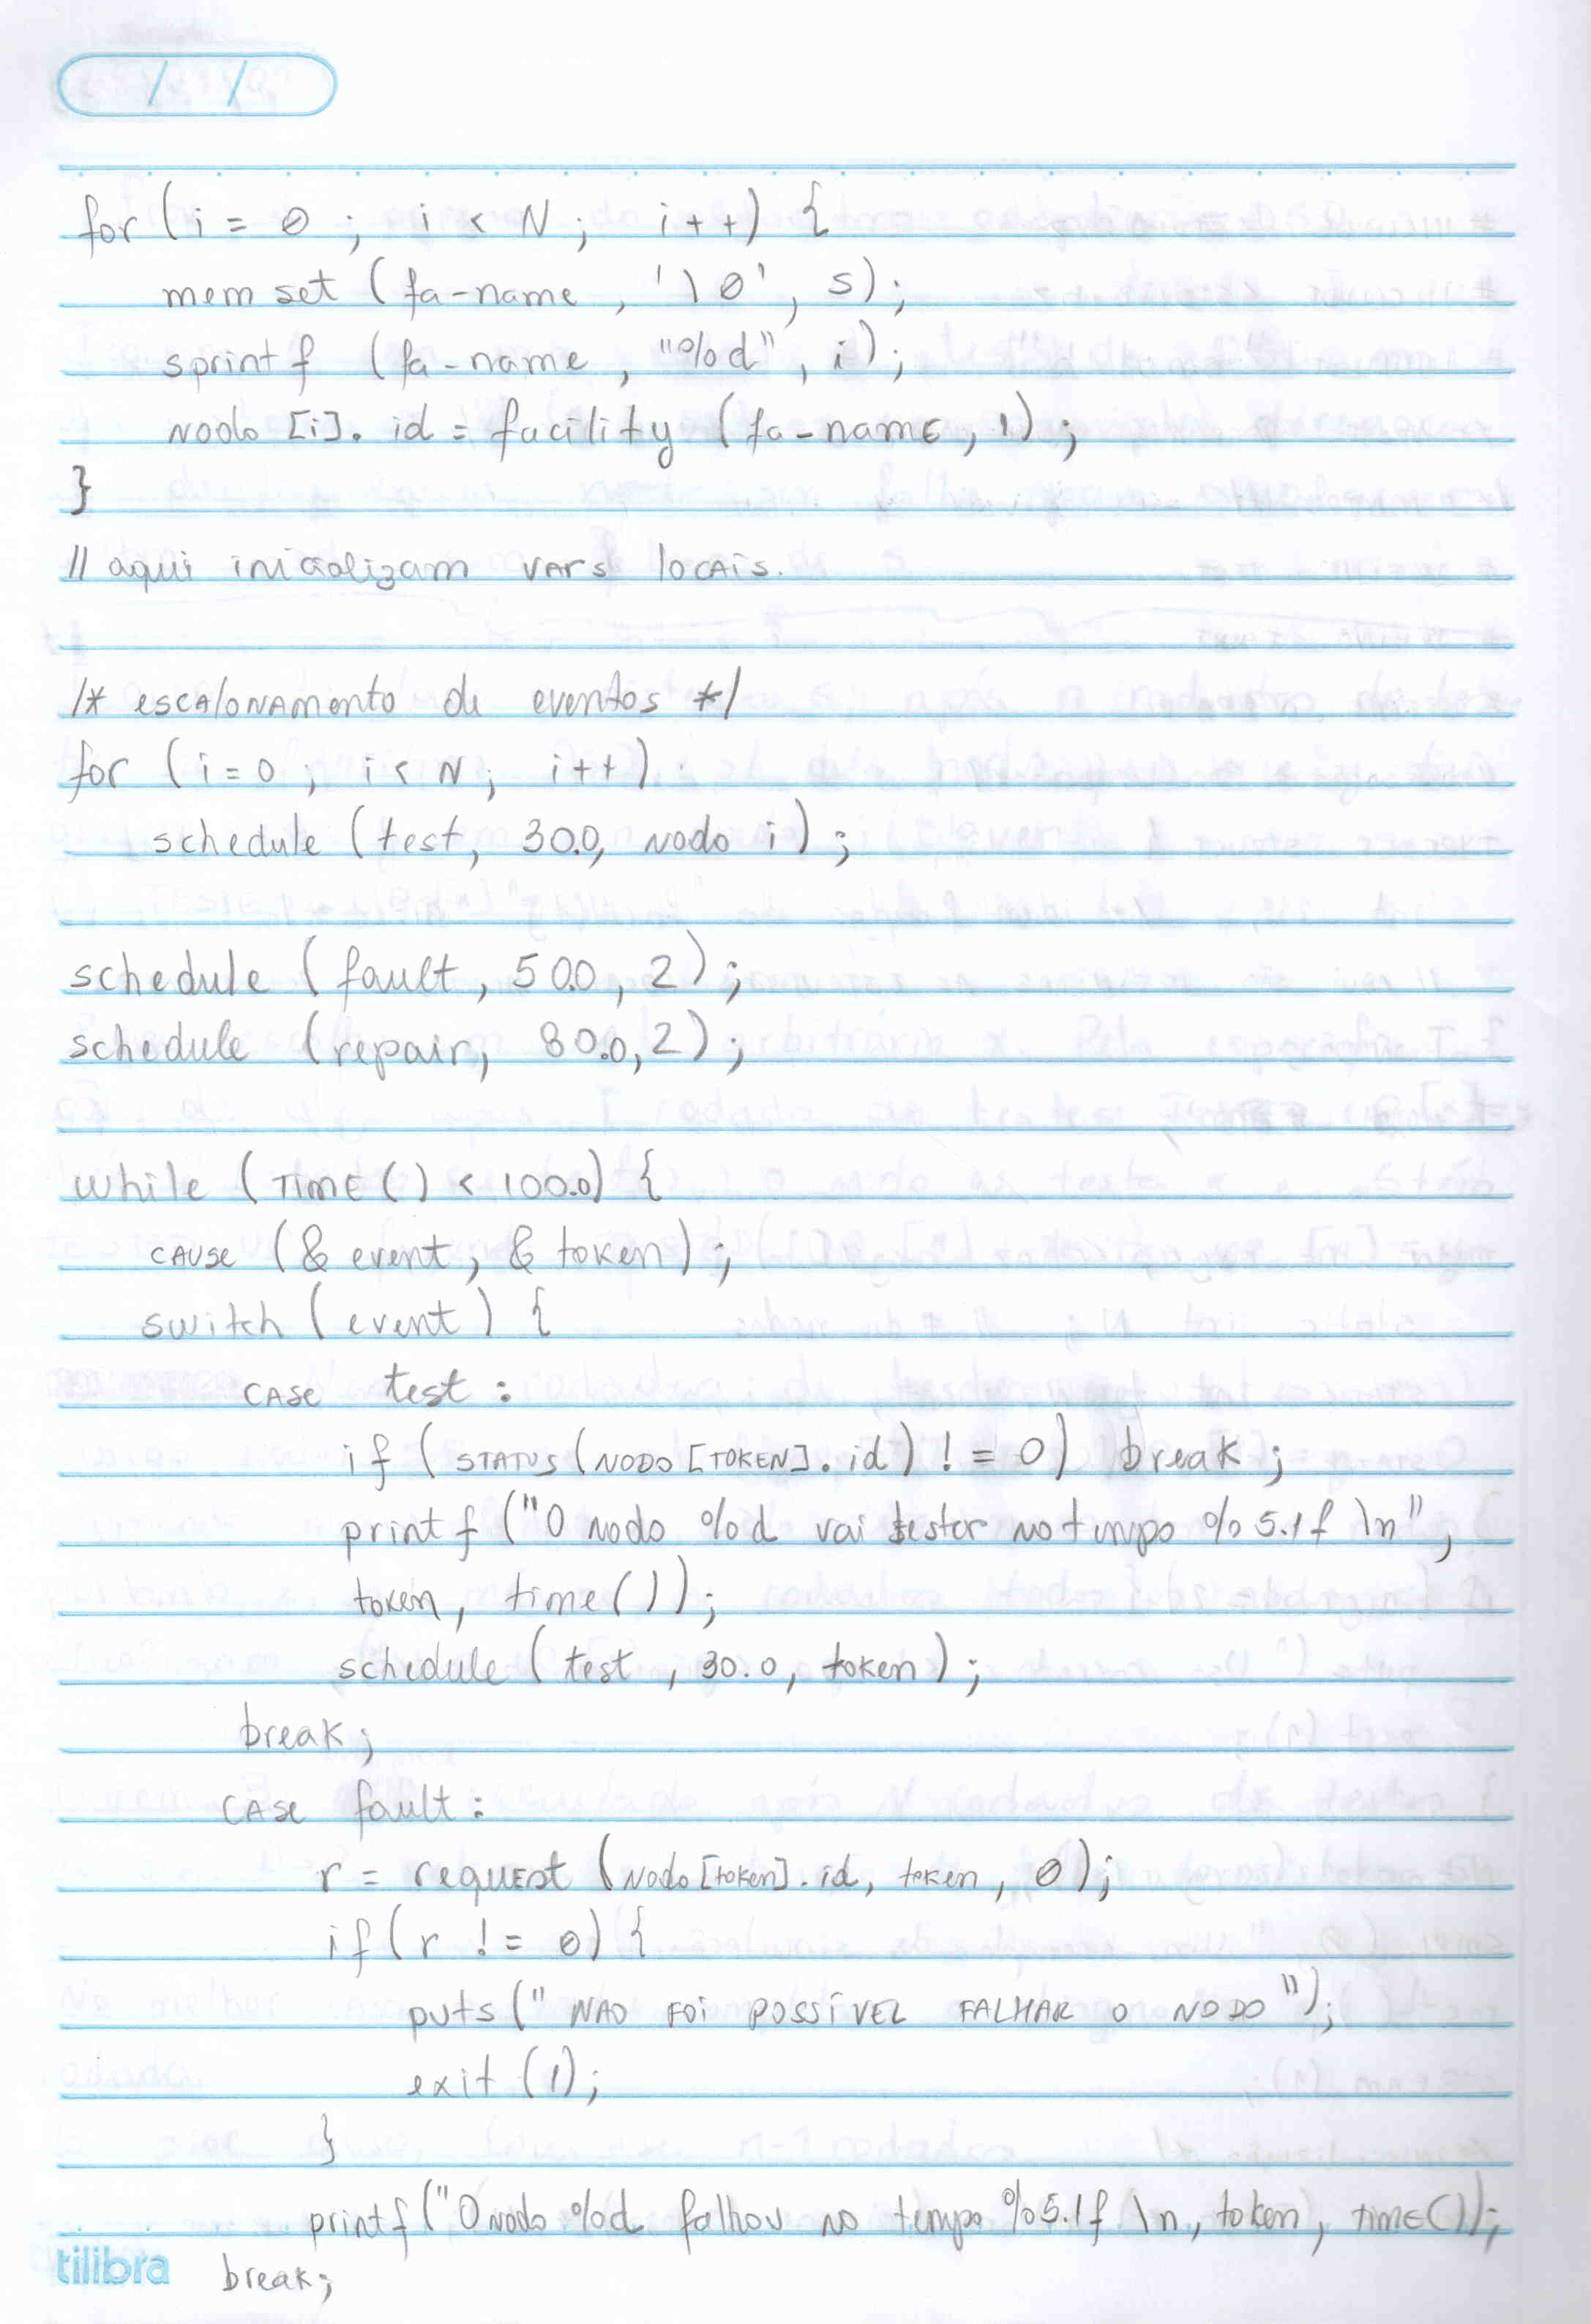 for (i = 0 ; i < N ; i++) {
mem set (fa-name , '\0' , s) ;
sprintf (fa-name , "%d" , i) ;
Nodo [i]. id = facility (fa-name, 1) ;
}
// aqui inicializam vars locais.
/* escalonamento de eventos */
for (i=0 ; i< N ; i++)
schedule (test, 30.0, Nodo i) ;
schedule (fault , 50.0 , 2) ;
schedule (repair, 80.0, 2) ;
while (TIME () < 100.0) {
CAUSE (& event , & token) ;
switch (event) {
CASE test :
if (STATUS (NODO [TOKEN]. id) != 0) break ;
printf ("O nodo %d vai testar no tempo %5.1f \n" ,
token, time()) ;
schedule (test , 30.0, token) ;
break ;
CASE fault :
r = request (Nodo [token]. id, token , 0) ;
if (r != 0) {
puts (" NAO FOI POSSÍVEL FALHAR O NODO ") ;
exit (1) ;
}
printf ("O nodo %d falhou no tempo %5.1f \n, token, TIME()) ;
break ;
tilibra